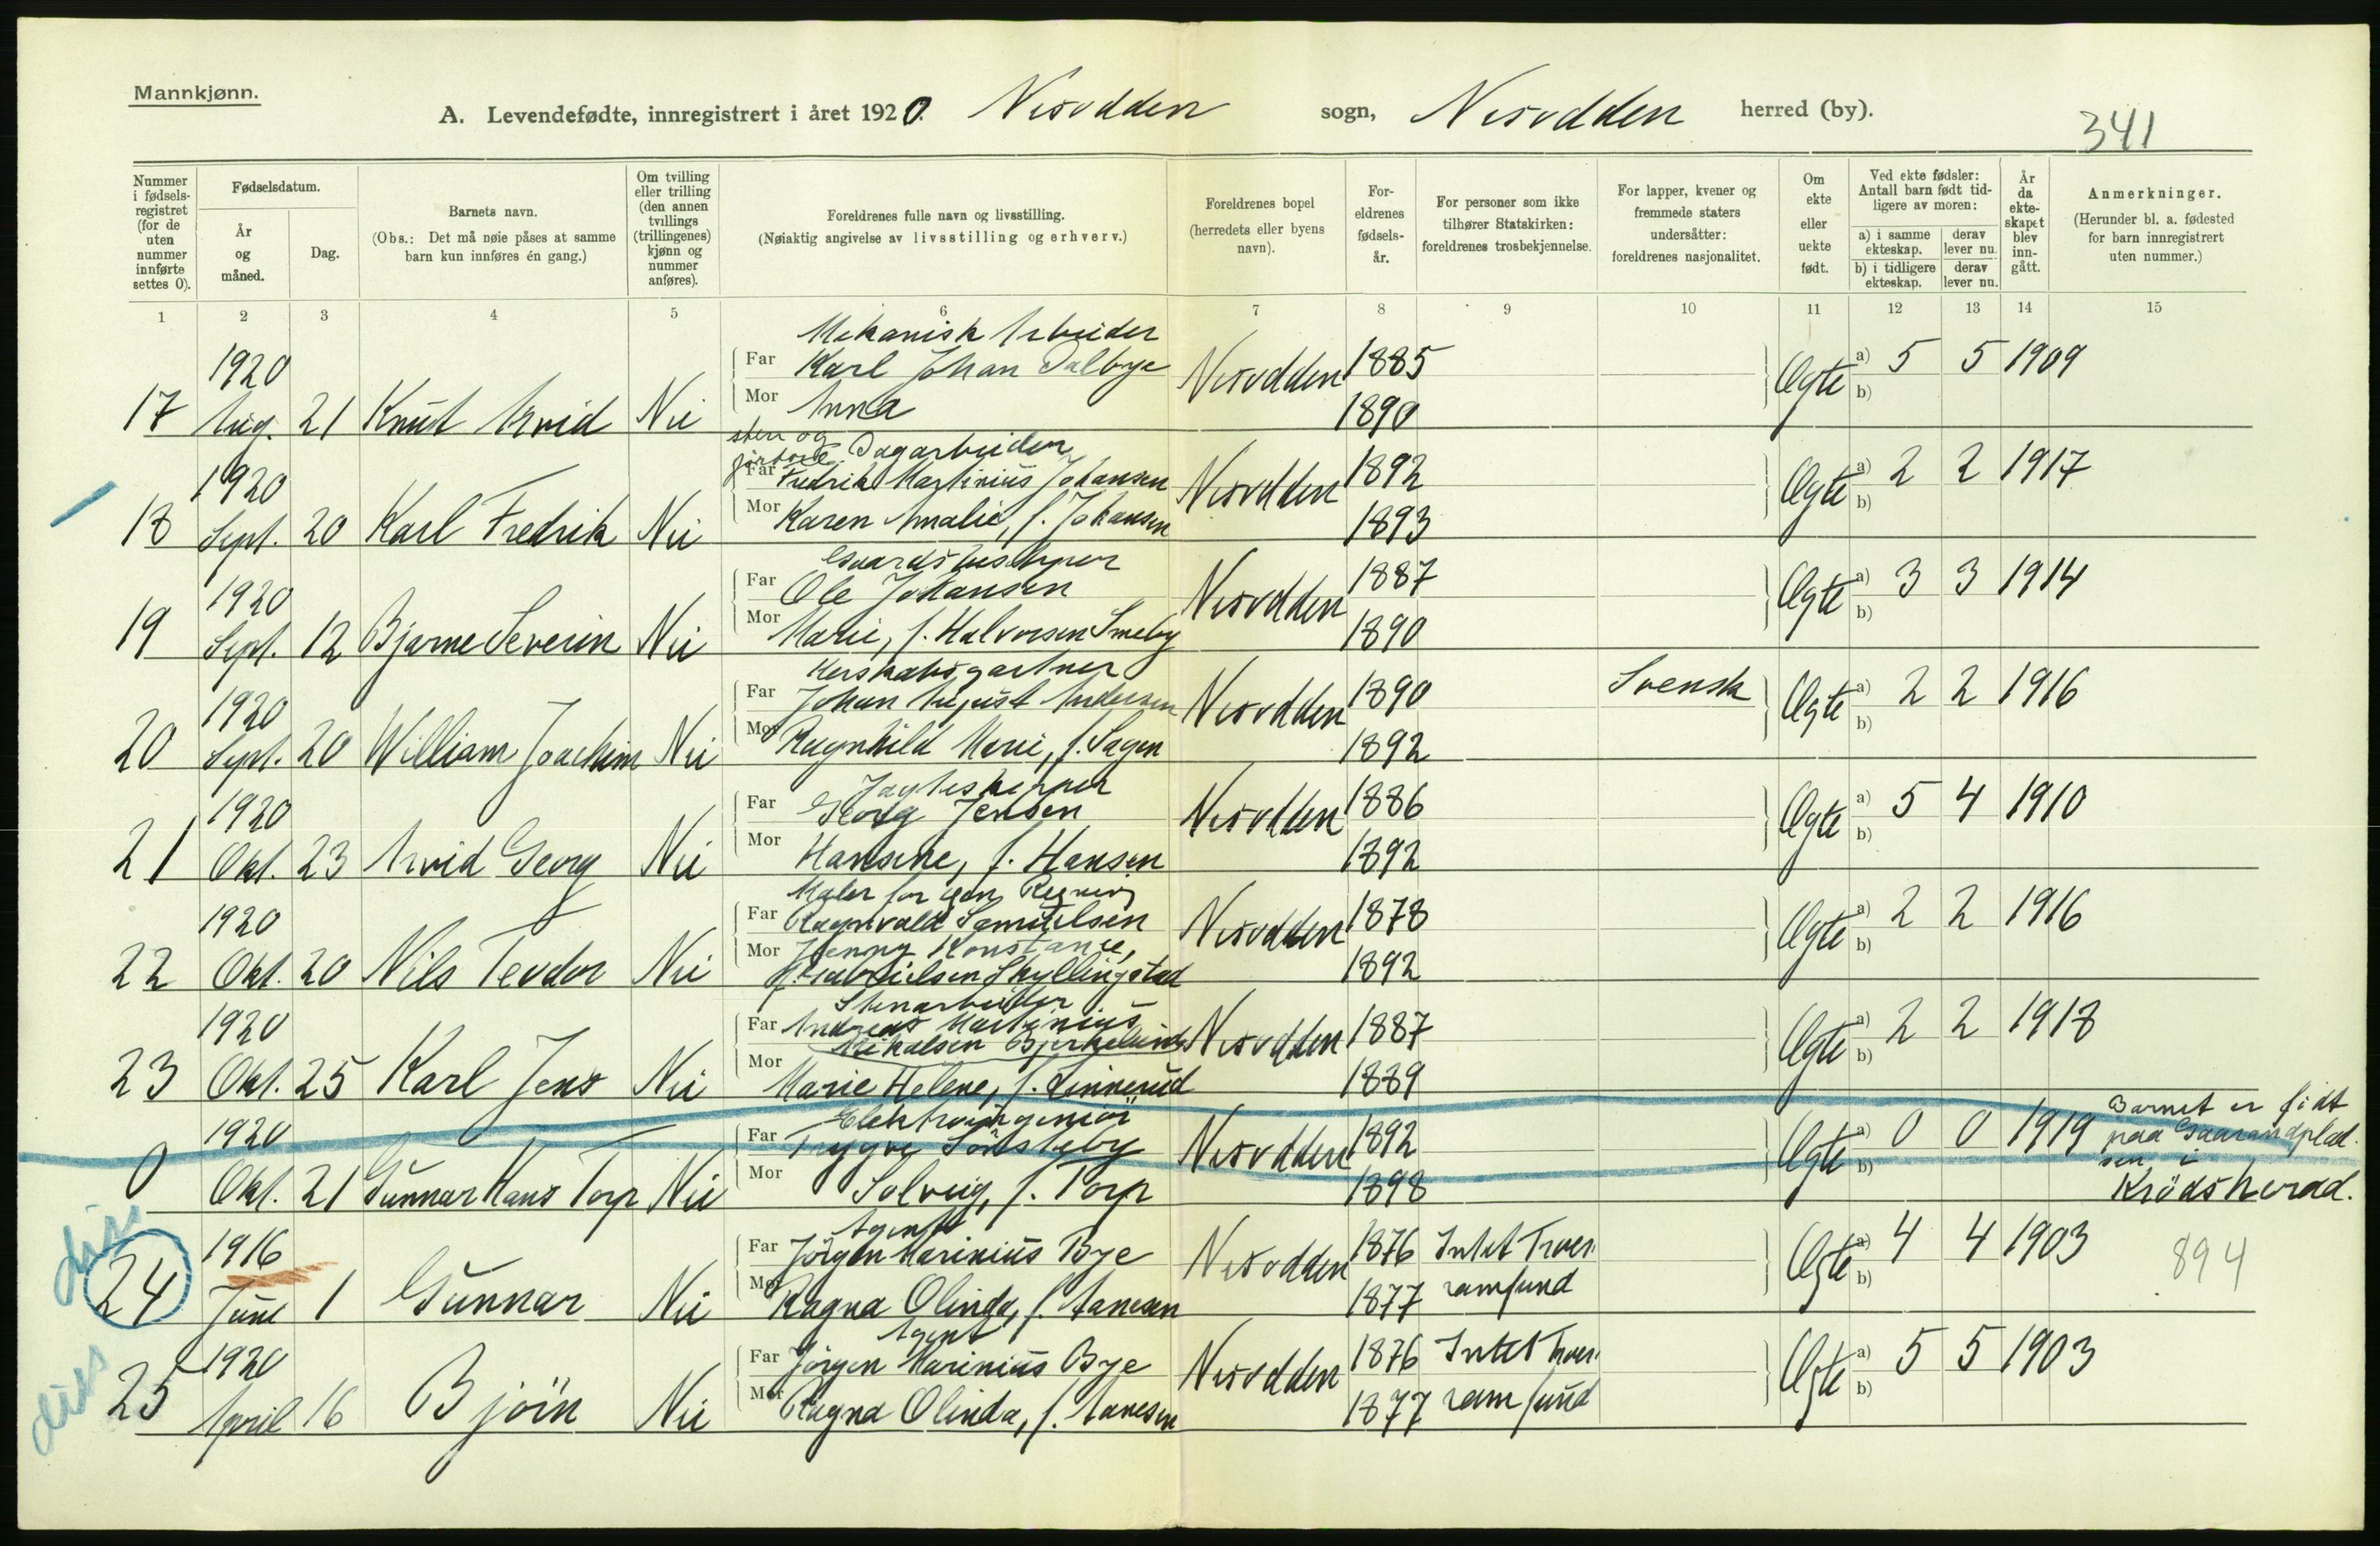 Mannkjønn.
A. Levendefødte, innregistrert i året 1920. Nesodden sogn, Nesodden herred (by).
341
Nummer i fødsels-registret (for de uten nummer innførte settes 0).
Fødselsdatum.
År og måned.
Dag.
Barnets navn.
(Obs.: Det må nøie påses at samme barn kun innføres én gang.)
Om tvilling eller trilling (den annen tvillings (trillingenes) kjønn og nummer anføres).
Foreldrenes fulle navn og livsstilling.
(Nøiaktig angivelse av livsstilling og erhverv.)
Foreldrenes bopel (herredets eller byens navn).
For-eldrenes fødsels-år.
For personer som ikke tilhører Statskirken: foreldrenes trosbekjennelse.
For lapper, kvener og fremmede staters undersåtter: foreldrenes nasjonalitet.
Om ekte eller uekte født.
Ved ekte fødsler: Antall barn født tid-ligere av moren:
a) i samme ekteskap. derav lever nu.
b) i tidligere ekteskap. derav lever nu.
År da ekte-skapet blev inn-gått.
Anmerkninger.
(Herunder bl. a. fødested for barn innregistrert uten nummer.)
1 2 3 4 5 6 7 8 9 10 11 12 13 14 15
Mekanisk Arbeider
1920 Far Karl Johan Dalbye Nesodden 1885 Ægte a) 5 5 1909
17 Aug. 21 Knut Arvid Nei Mor Anna 1890 b)
sten og jord Dagarbeider
1920 Far Fredrik Martinius Johansen Nesodden 1892 Ægte a) 2 2 1917
18 Sept. 20 Karl Fredrik Nei Mor Karen Amalie, f. Johansen 1893 b)
Gaardsbestyrer
1920 Far Ole Johansen Nesodden 1887 Ægte a) 3 3 1914
19 Sept. 12 Bjarne Severin Nei Mor Marie, f. Halvorsen Smeby 1890 b)
Herskabsgartner
1920 Far Johan August Andersen Nesodden 1890 Svensk Ægte a) 2 2 1916
20 Sept. 20 William Joachim Nei Mor Ragnhild Marie, f. Sagen 1892 b)
Jagteskipper
1920 Far Georg Jensen Nesodden 1886 Ægte a) 5 4 1910
21 Okt. 23 Arvid Georg Nei Mor Hansine, f. Hansen 1892 b)
Maler for egen Regning
1920 Far Ragnvald Samuelsen Nesodden 1878 Ægte a) 2 2 1916
Mor Jenny Konstance,
22 Okt. 20 Nils Teodor Nei f. Gabrielsen Skyllingstad 1892 b)
Stenarbeider
1920 Far Andreas Martinius Nesodden 1887 Ægte a) 2 2 1918
Mikalsen Bjerkelund
23 Okt. 25 Karl Jens Nei Mor Marie Helene, f. Linnerud 1889 b)
Elektroingeniör
1920 Far Trygve Sönsteby Nesodden 1892 Ægte a) 0 0 1919 Barnet er födt paa
0 Okt. 21 Gunnar Hans Torp Nei Mor Solveig, f. Torp 1898 b) i Krödsherad.
Agent
1916 Far Jörgen Marinius Bye Nesodden 1876 Intet Troes- Ægte a) 4 4 1903 894
24 June 1 Gunnar Nei Mor Ragna Olinda, f. Aanesen 1877 samfund b)
Agent
1920 Far Jörgen Marinius Bye Nesodden 1876 Intet Troes- Ægte a) 5 5 1903
25 April 16 Björn Nei Mor Ragna Olinda, f. Aanesen 1877 samfund b)
diss
diss